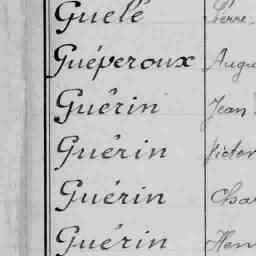 Guelé
Guéperoux Augu
Guérin Jean
Guérin Victor
Guérin Char
Guérin Hen